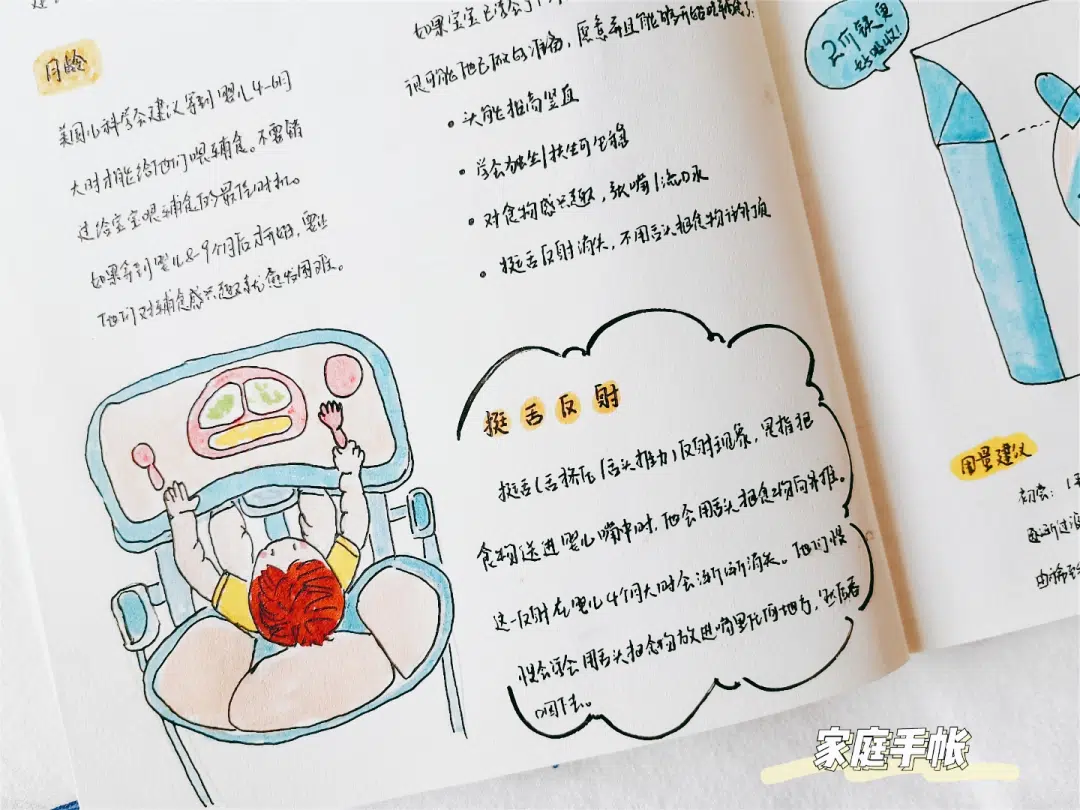 月龄
美国儿科学会建议等到婴儿4-6月
大时才能给他们喂辅食。不要错
过给宝宝喂辅食的最佳时机。
如果等到婴儿8-9个月后才开始，要让
他们对辅食感兴趣就愈发困难。
如果宝宝已
很可能他已做好准备，愿意并且能够开始吃辅食了：
• 头能挺高竖直
• 学会独坐/扶坐可坐稳
• 对食物感兴趣，张嘴/流口水
• 挺舌反射消失，不用舌头把食物往外顶
挺舌反射
挺舌(舌挤压/舌头推力)反射现象，是指把
食物送进婴儿嘴中时，他会用舌头把食物向外推。
这一反射在婴儿4个月大时会渐渐消失。他们慢
慢会学会用舌头把食物放进嘴里任何地方，然后吞
咽下去。
2价铁更
好吸收！
用量建议
初尝：1
逐渐过渡
由稀到
家庭手帐